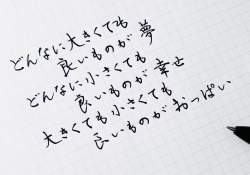 どんなに大きくても
良いものが夢
どんなに小さくても
良いものが幸せ
大きくても小さくても
良いものがおっぱい